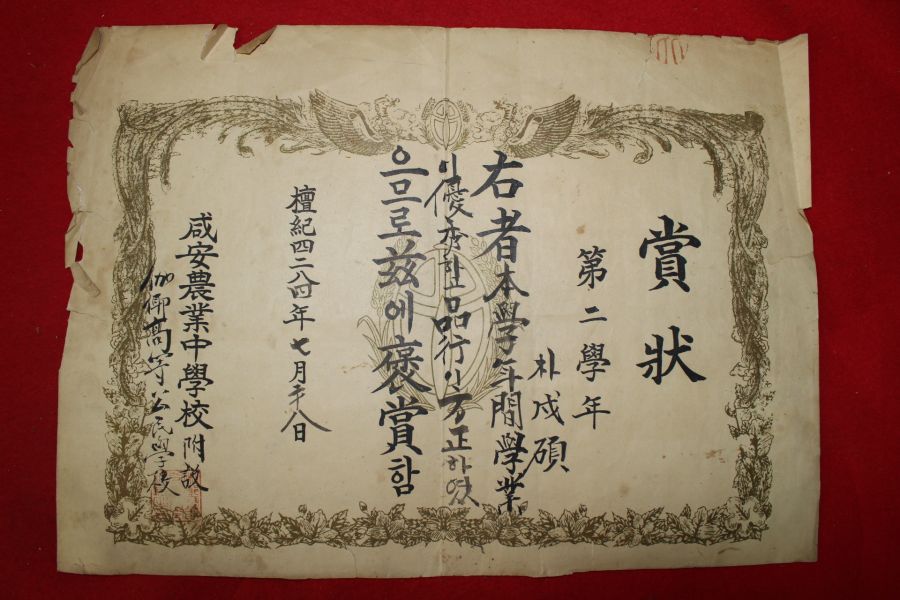 賞狀
第二學年
朴成碩
右者本學年間學業
이優秀하고品行이方正하였
으므로玆에褒賞함
檀紀四二八四年七月 八日
咸安農業中學校附設
伽倻高等公民學校